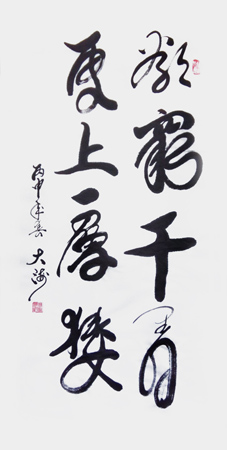 欲窮千里目
更上一層樓
丙申年春 大海